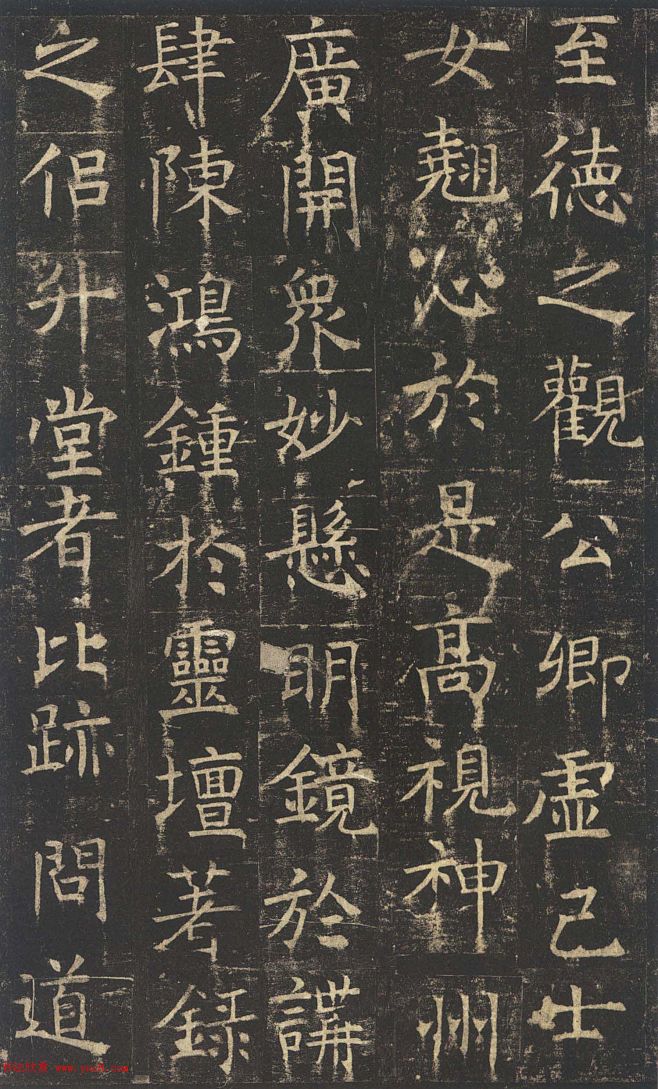 至德之觀公卿虛己士
女翹心於是髙視神州
廣開衆妙懸明鏡於講
肆陳鴻鍾於靈壇著録
之侣升堂者比跡問道